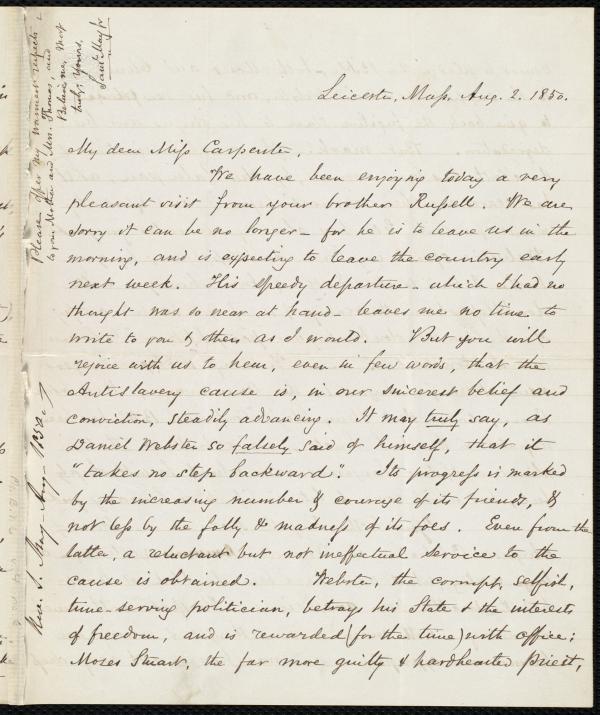 Leicester, Mass. Aug. 2. 1850.
My dear Miss Carpenter,
We have been enjoying today a very
pleasant visit from your brother Russell. We are
sorry it can be no longer – for he is to leave us in the
morning, and is expecting to leave the country early
next week. His speedy departure – which I had no
thought was so near at hand – leaves me no time to
write to you & others as I would. But you will
rejoice with us to hear, even in few words, that the
Antislavery cause is, in our sincerest belief and
conviction, steadily advancing. It may truly say, as
Daniel Webster so falsely said of himself, that it
"takes no step backward". Its progress is marked
by the increasing number & courage of its friends, &
not less by the folly & madness of its foes. Even from the
latter, a reluctant but not ineffectual service to the
cause is obtained. Webster, the corrupt, selfish,
time-serving politician, betrays his State & the interests
of freedom, and is rewarded (for the time) with office;
Moses Stuart, the far more guilty & hardhearted Priest,
Please offer my warmest respects
to your Mother and Mrs. Thomas, and
Believe me, Most
truly yours,
Saml. May Jr
Rev. S. May Aug. 1850.